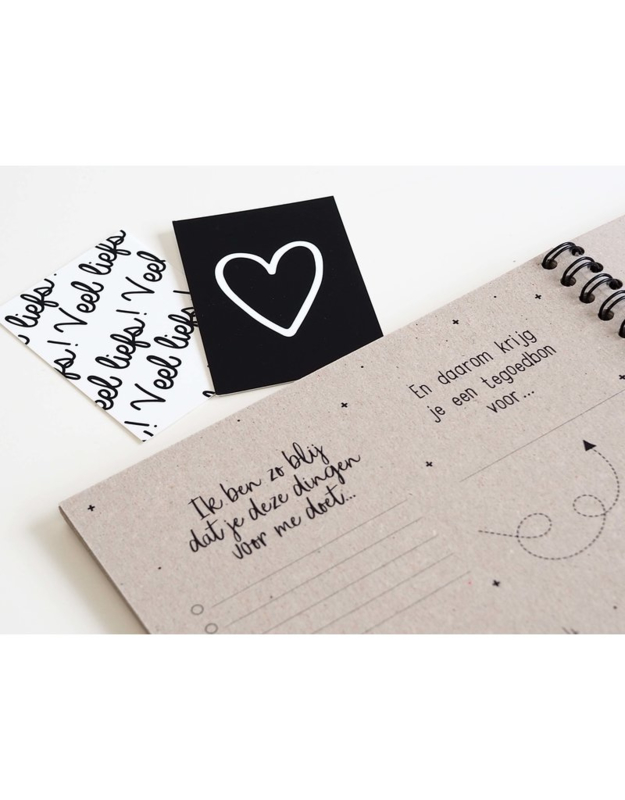 liefs!
Veel liefs
fs! Veel liefs! Veel
eel liefs! Veel
! Veel liefs!
En daarom krijg
je een tegoedbon
voor...
Ik ben zo blij
dat je deze dingen
voor me doet...